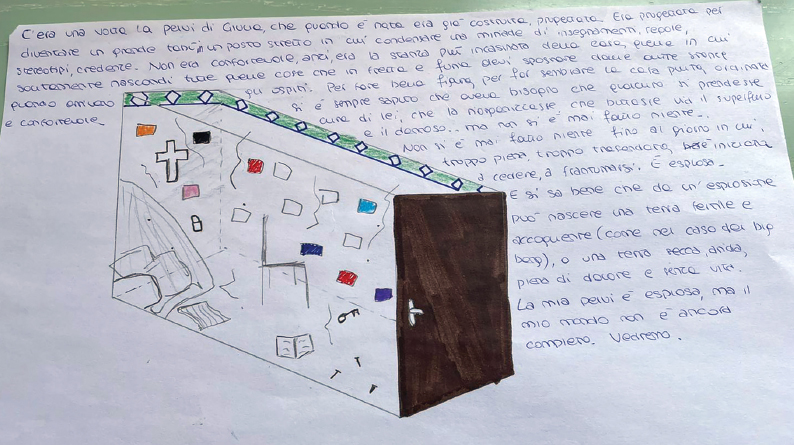 C'era una volta la pelvi di Giulia, che quando è nata era già costruita, progettata. Era progettata per
diventare un grande tanti, un posto stretto in cui condensare una miriade di insegnamenti, regole,
stereotipi, credenze. Non era confortevole, anzi, era la stanza più incasinata della casa, quella in cui
solitamente nascondi tutte quelle cose che in fretta e furia devi spostare dalle altre stanze
quando arrivano gli ospiti. Per fare bella figura, per far sembrare la casa pulita, ordinata
e confortevole. Si è sempre saputo che aveva bisogno che qualcuno si prendesse
cura di lei, che la riorganizzasse, che buttasse via il superfluo
e il dannoso.. ma non si è mai fatto niente..
Non si è mai fatto niente fino al giorno in cui,
troppo piena, troppo trascurata, iniziava
a cedere, a frantumarsi. È esplosa.
E si sa bene che da un'esplosione
può nascere una terra fertile e
accogliente (come nel caso del big
bang), o una terra secca, arida,
piena di dolore e senza vita.
La mia pelvi è esplosa, ma il
mio mondo non è ancora
completo. Vedremo.